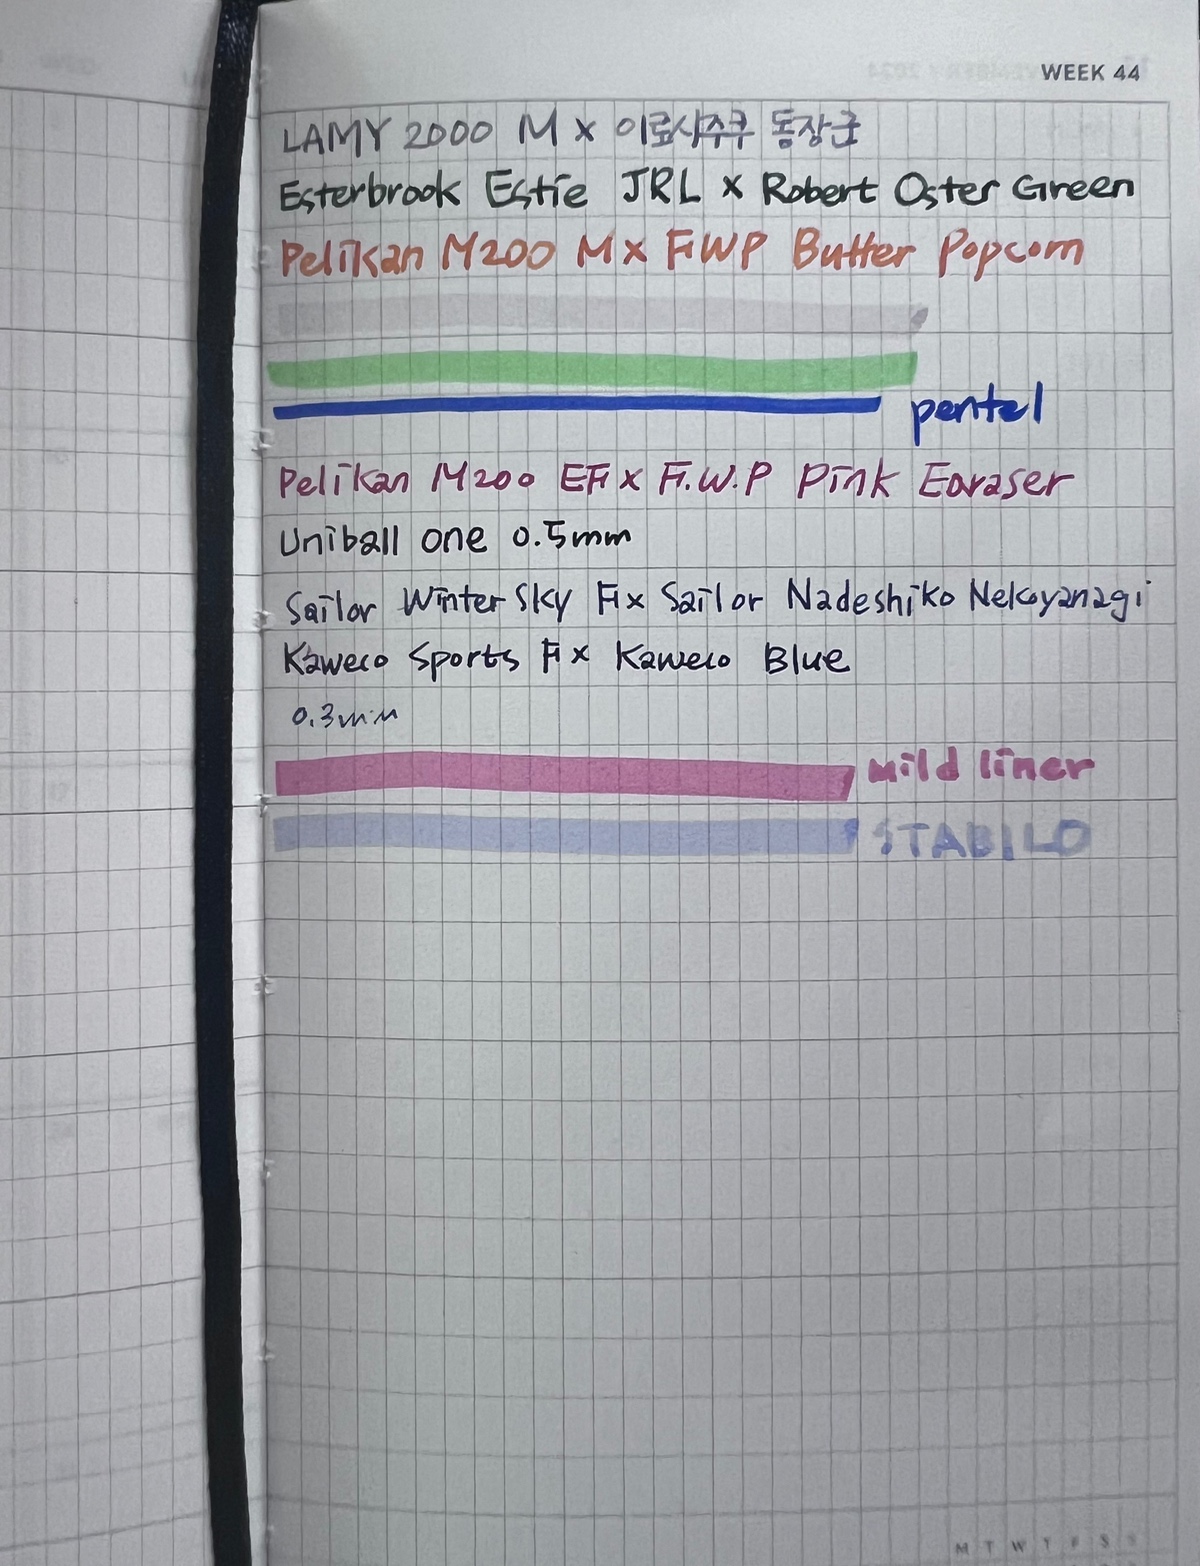 WEEK 44
LAMY 2000 M x 이로시주쿠 동장군
Esterbrook Estie JRL x Robert Oster Green
Pelikan M200 M x FWP Butter Popcorn
pentel
Pelikan M200 EF x F.W.P Pink Earaser
Uniball one 0.5mm
Sailor Winter Sky F x Sailor Nadeshiko Nekoyanagi
Kaweco Sports F x Kaweco Blue
0.3mm
Mild liner
STABILO
M T W T F S S